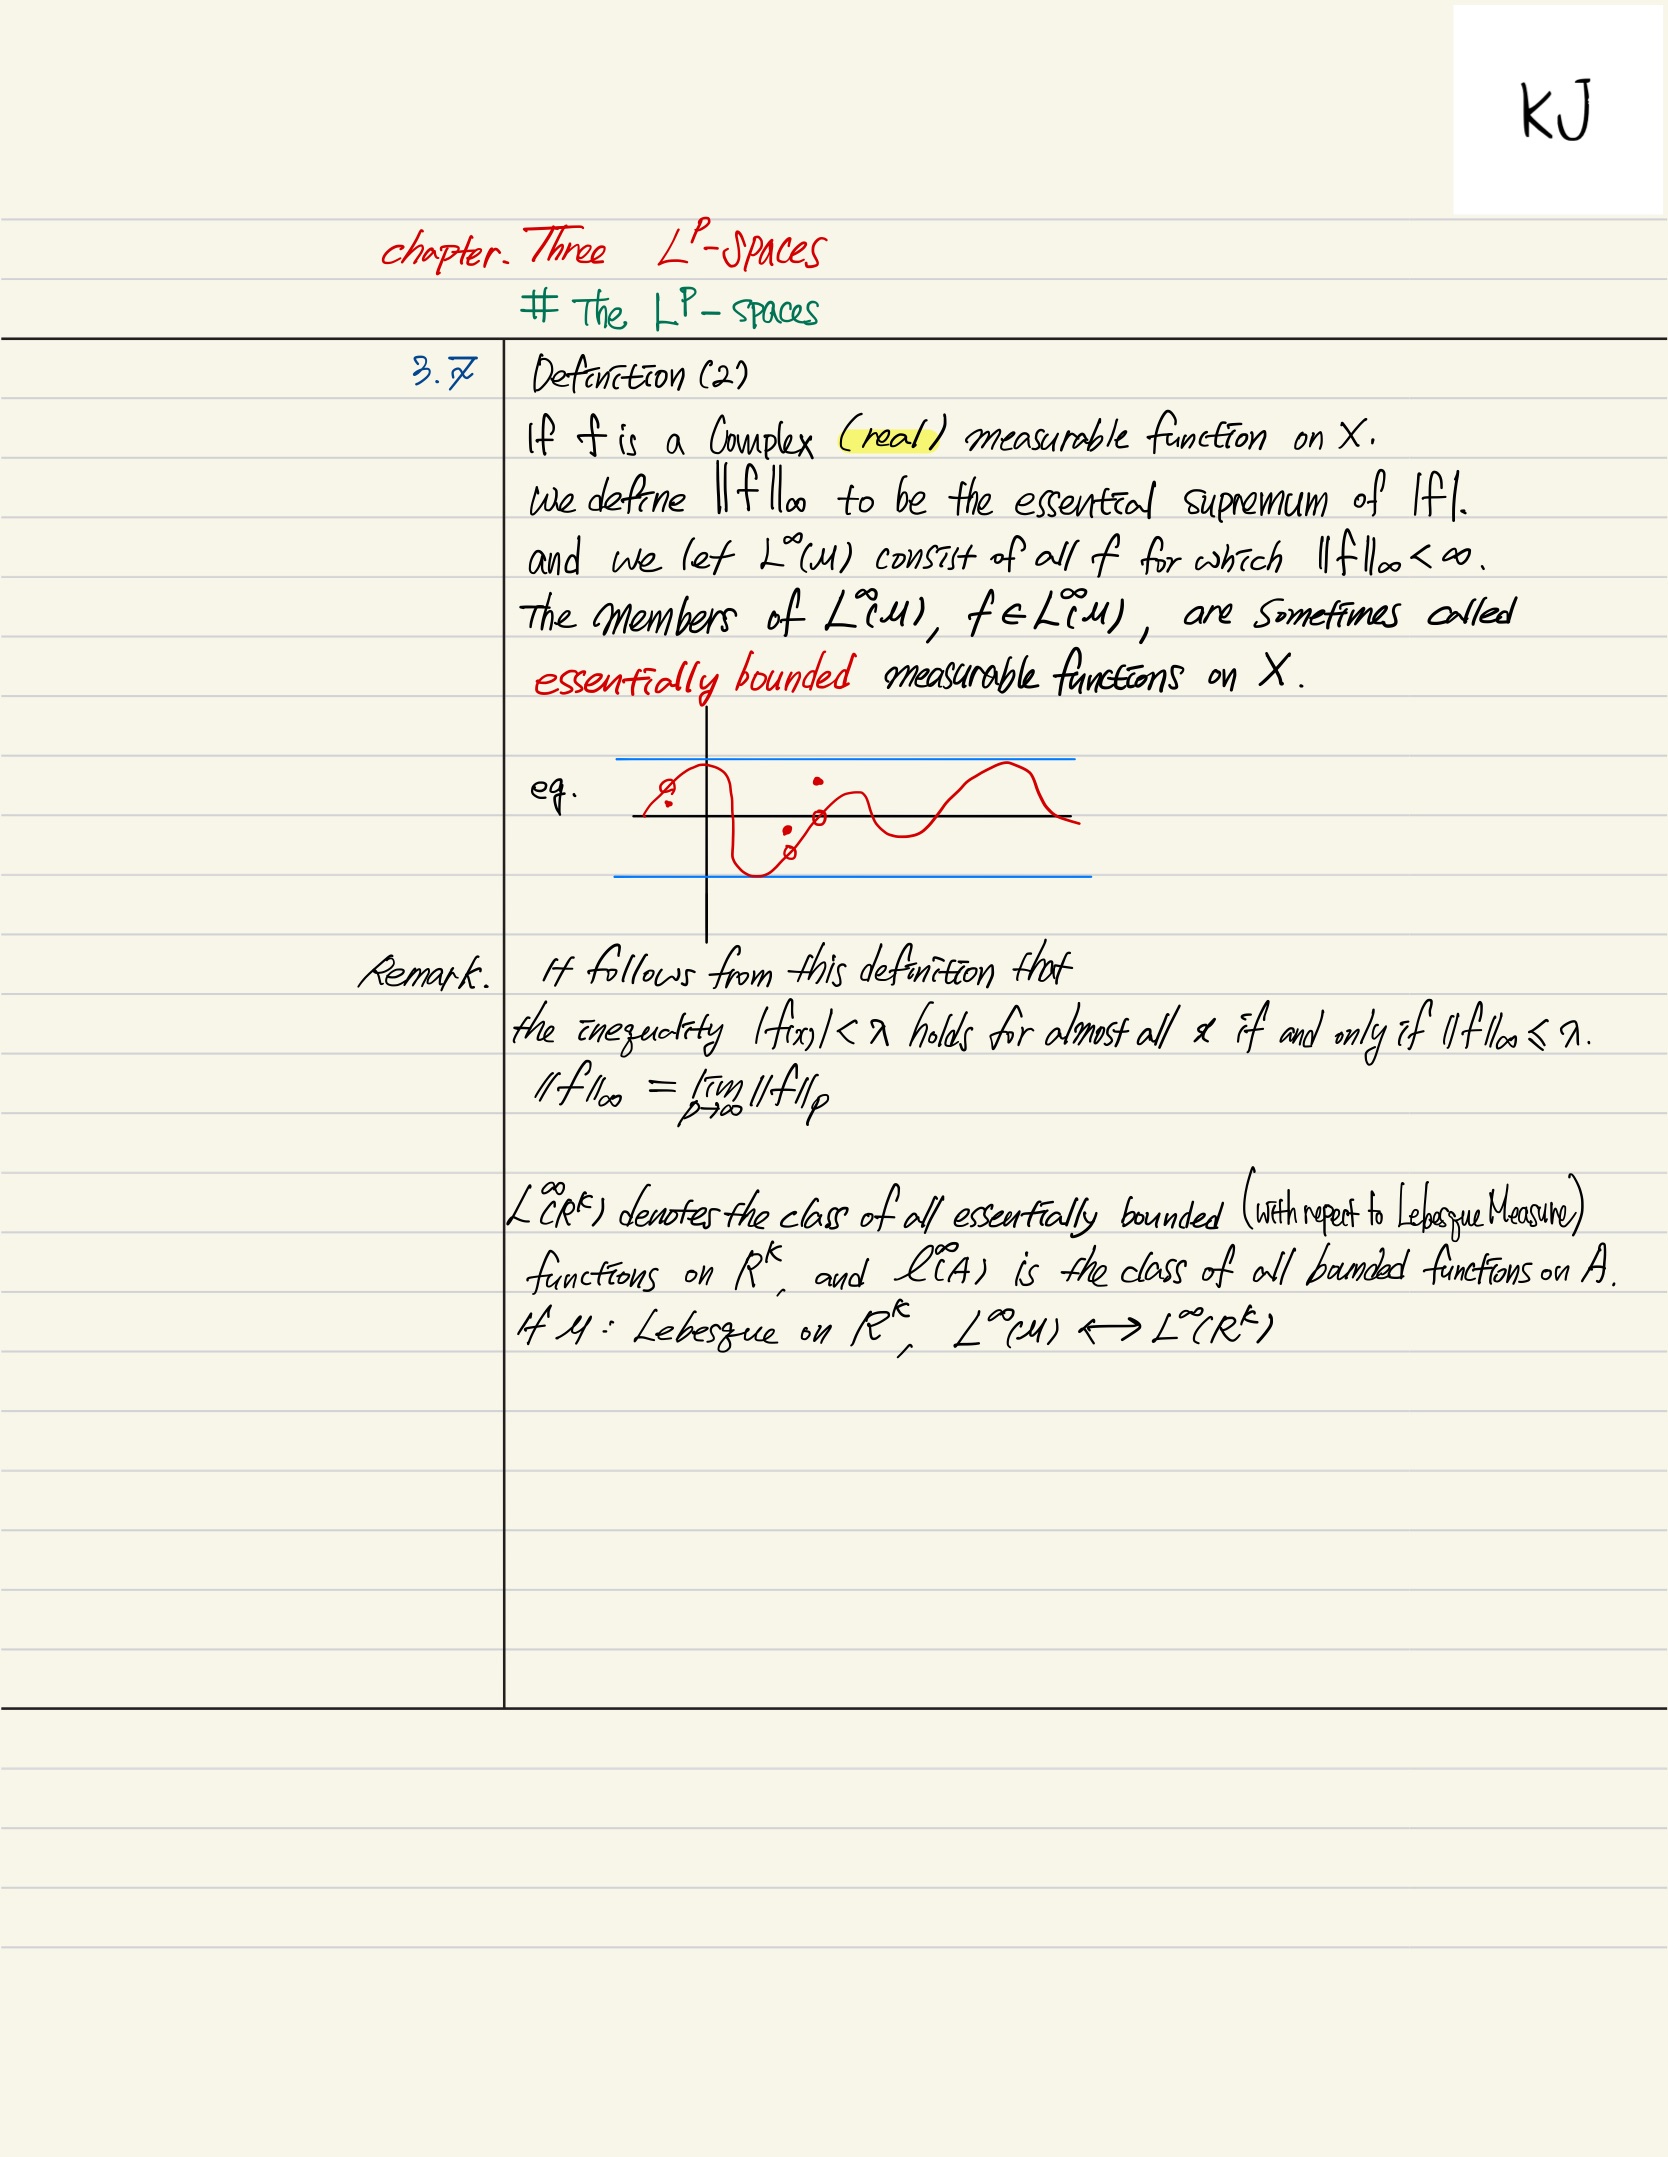 KJ
chapter. Three L^p-spaces
# The L^p-spaces
3.7 Definition (2)
If f is a Complex (real) measurable function on X.
we define ||f||∞ to be the essential supremum of |f|.
and we let L^∞(μ) consist of all f for which ||f||∞ < ∞.
The members of L^∞(μ), f ∈ L^∞(μ), are sometimes called
essentially bounded measurable functions on X.
eg.
Remark. It follows from this definition that
the inequality |f(x)| < λ holds for almost all x if and only if ||f||∞ ≤ λ.
||f||∞ = lim p→∞ ||f||p
L^∞(R^k) denotes the class of all essentially bounded (with repect to Lebesgue Measure)
functions on R^k, and ℓ^∞(A) is the class of all bounded functions on A.
If μ : Lebesgue on R^k, L^∞(μ) ↔ L^∞(R^k)